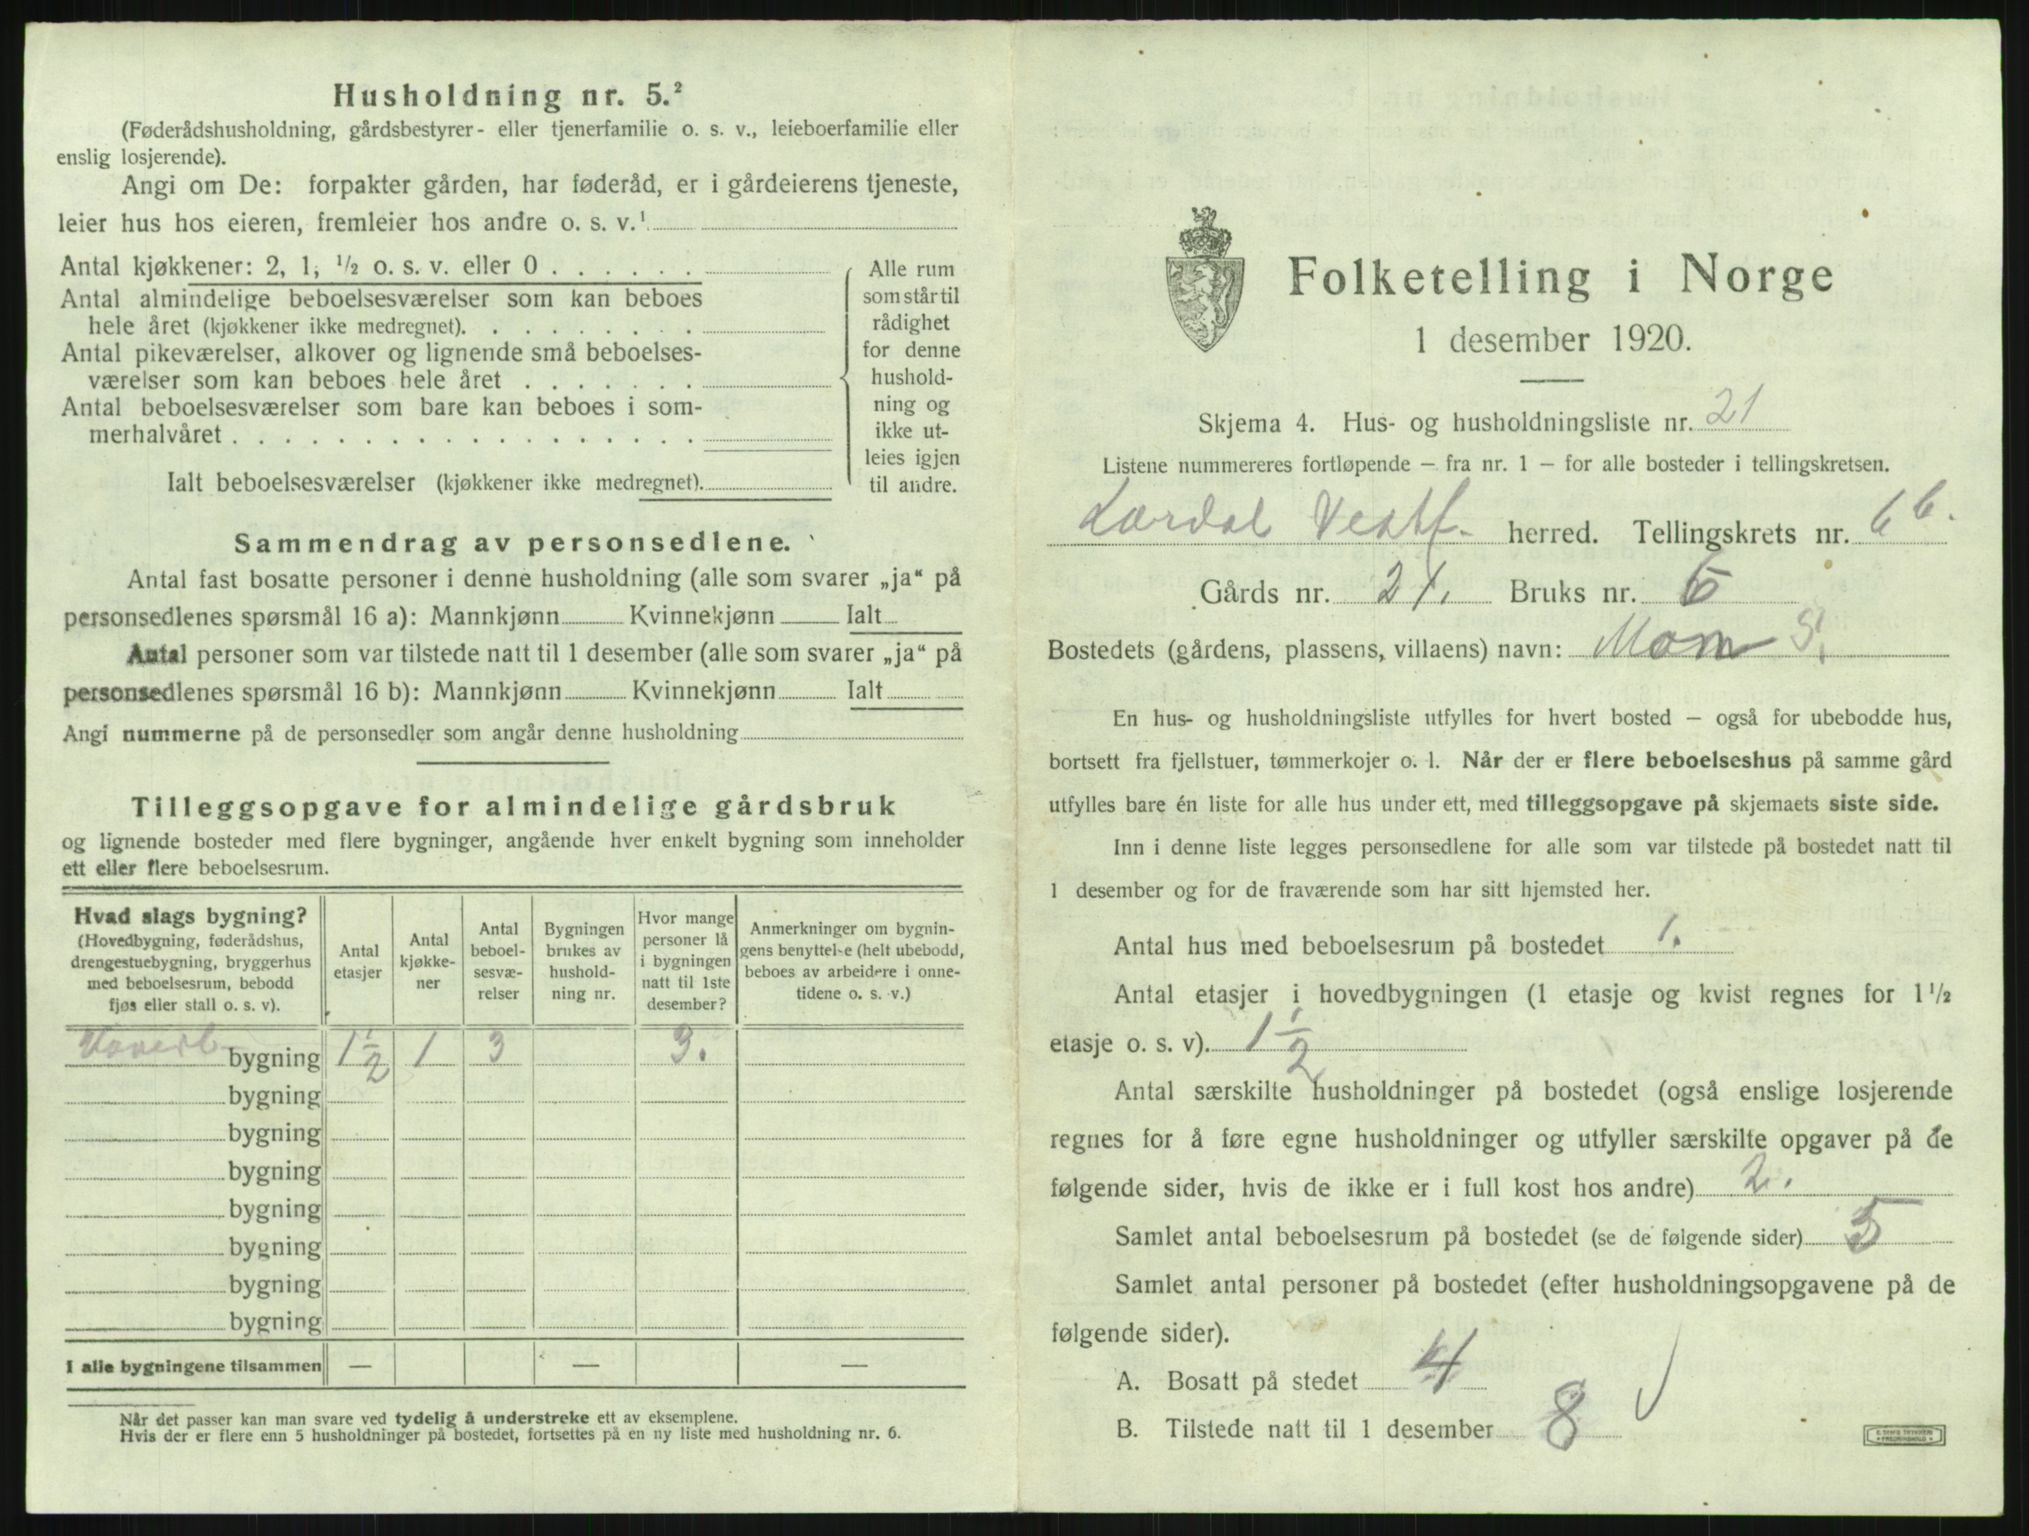 Husholdning nr. 5.²
(Føderådshusholdning, gårdsbestyrer- eller tjenerfamilie o. s. v., leieboerfamilie eller
enslig losjerende).
Angi om De: forpakter gården, har føderåd, er i gårdeierens tjeneste,
leier hus hos eieren, fremleier hos andre o. s. v.¹
Antal kjøkkener: 2, 1, ½ o. s. v. eller 0
Antal almindelige beboelsesværelser som kan beboes
hele året (kjøkkener ikke medregnet).
Antal pikeværelser, alkover og lignende små beboelses-
værelser som kan beboes hele året
Antal beboelsesværelser som bare kan beboes i som-
merhalvåret
Ialt beboelsesværelser (kjøkkener ikke medregnet).
Alle rum
som står til
rådighet
for denne
hushold-
ning og
ikke ut-
leies igjen
til andre.
Sammendrag av personsedlene.
Antal fast bosatte personer i denne husholdning (alle som svarer „ja“ på
personsedlenes spørsmål 16 a): Mannkjønn Kvinnekjønn Ialt
Antal personer som var tilstede natt til 1 desember (alle som svarer „ja“ på
personsedlenes spørsmål 16 b): Mannkjønn Kvinnekjønn Ialt
Angi nummerne på de personsedler som angår denne husholdning
Tilleggsopgave for almindelige gårdsbruk
og lignende bosteder med flere bygninger, angående hver enkelt bygning som inneholder
ett eller flere beboelsesrum.
Hvad slags bygning?
(Hovedbygning, føderådshus,
drengestuebygning, bryggerhus
med beboelsesrum, bebodd
fjøs eller stall o. s. v).
Antal
etasjer
Antal
kjøkke-
ner
Antal
beboel-
sesvæ-
relser
Bygningen
brukes av
hushold-
ning nr.
Hvor mange
personer lå
i bygningen
natt til 1ste
desember?
Anmerkninger om bygnin-
gens benyttelse (helt ubebodd,
beboes av arbeidere i onne-
tidene o. s. v.)
bygning 1½ 1 3 3.
bygning
bygning
bygning
bygning
bygning
bygning
bygning
I alle bygningene tilsammen — — —
Når det passer kan man svare ved tydelig å understreke ett av eksemplene.
Hvis der er flere enn 5 husholdninger på bostedet, fortsettes på en ny liste med husholdning nr. 6.
Folketelling i Norge
1 desember 1920.
Skjema 4. Hus- og husholdningsliste nr. 21
Listene nummereres fortløpende – fra nr. 1 – for alle bosteder i tellingskretsen.
Lærdal herred. Tellingskrets nr. 6 b.
Gårds nr. 21. Bruks nr.
Bostedets (gårdens, plassens, villaens) navn:
En hus- og husholdningsliste utfylles for hvert bosted – også for ubebodde hus,
bortsett fra fjellstuer, tømmerkojer o. l. Når der er flere beboelseshus på samme gård
utfylles bare én liste for alle hus under ett, med tilleggsopgave på skjemaets siste side.
Inn i denne liste legges personsedlene for alle som var tilstede på bostedet natt til
1 desember og for de fraværende som har sitt hjemsted her.
Antal hus med beboelsesrum på bostedet 1.
Antal etasjer i hovedbygningen (1 etasje og kvist regnes for 1½
etasje o. s. v). 1½
Antal særskilte husholdninger på bostedet (også enslige losjerende
regnes for å føre egne husholdninger og utfyller særskilte opgaver på de
følgende sider, hvis de ikke er i full kost hos andre) 2.
Samlet antal beboelsesrum på bostedet (se de følgende sider)
Samlet antal personer på bostedet (efter husholdningsopgavene på de
følgende sider).
A. Bosatt på stedet 4
B. Tilstede natt til 1 desember 8